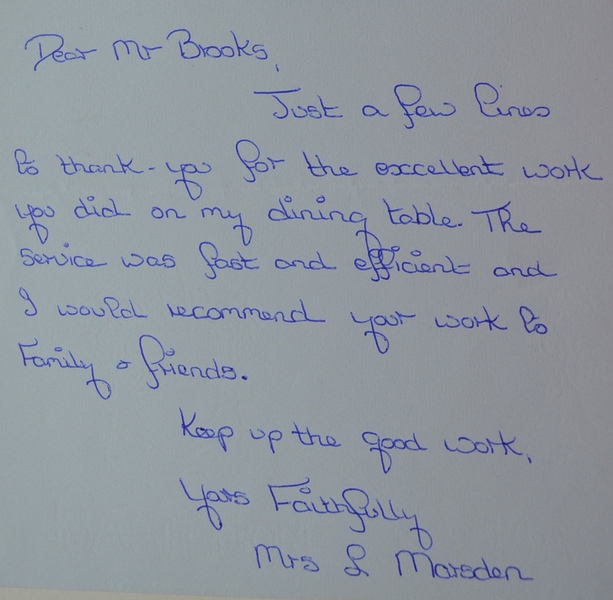 Dear Mr Brooks,
Just a few lines
to thank-you for the excellent work
you did on my dining table. The
service was fast and efficient and
I would recommend your work to
Family & friends.
Keep up the good work,
Yours Faithfully
Mrs L Marsden